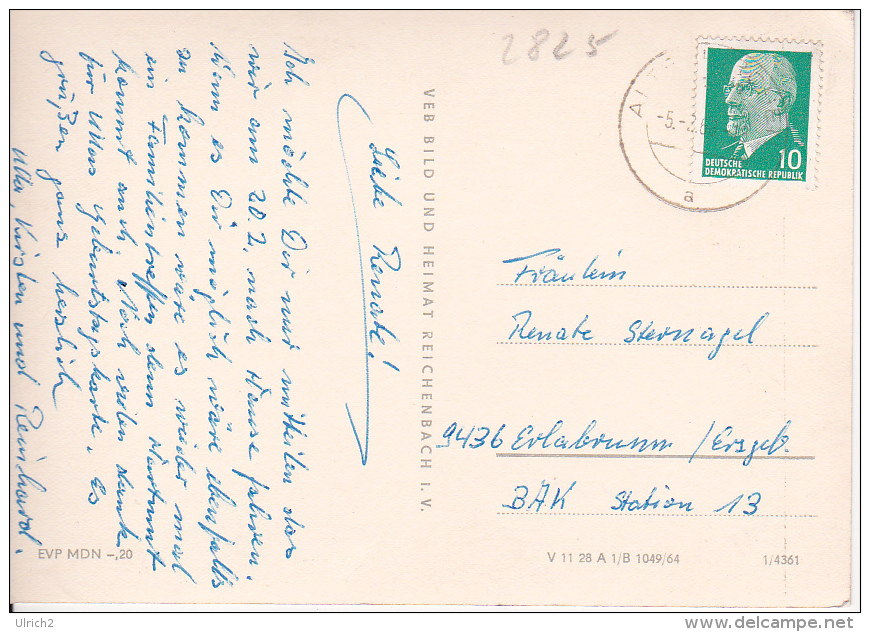 2825
ALT
-5.-2.6
a
DEUTSCHE
DEMOKRATISCHE REPUBLIK
10
Liebe Renate!
Ich möchte Dir nur mitteilen das
wir am 20.2. nach Hause fahren.
Wenn es Dir möglich wäre ebenfalls
zu kommen wäre es wieder mal
ein Familientreffen denn Hartmut
kommt auch. Noch vielen dank
für Ullas Geburtstagskarte. Es
grüßen ganz herzlich
Ulla, Kirsten und Reinhard.
VEB BILD UND HEIMAT REICHENBACH i. V.
Fräulein
Renate Sternagel
9436 Erlabrunn/Erzgeb.
BAK Station 13
EVP MDN -,20
V 11 28 A 1/B 1049/64
1/4361
Ulrich2